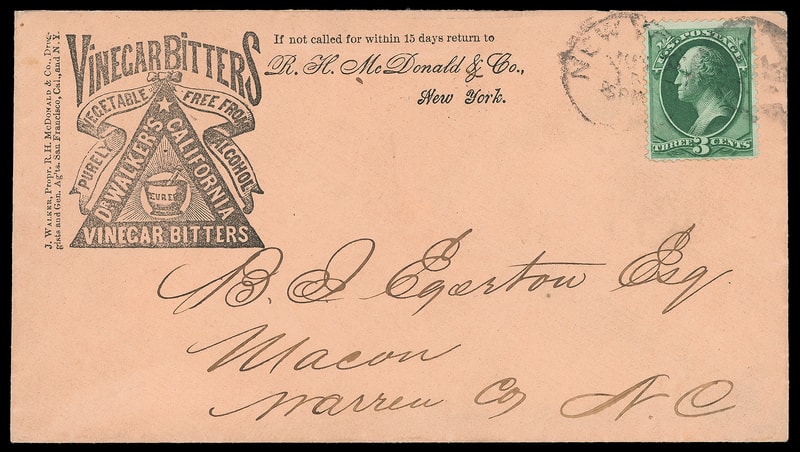 J. WALKER, Propr. R. H. MCDONALD & Co., Drug-
gists and Gen. Ag'ts. San Francisco, Cal., and N.Y.
VINEGAR BITTERS
PURELY VEGETABLE FREE FROM ALCOHOL
DR WALKER'S CALIFORNIA
CURES
VINEGAR BITTERS
If not called for within 15 days return to
R. H. McDonald & Co.,
New York.
NEW
U.S. POSTAGE
THREE 3 CENTS
B. J Egerton Esq.
Macon
Warren Co N. C